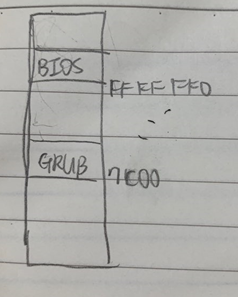 BIOS
FFFF FFF0
GRUB
7C00